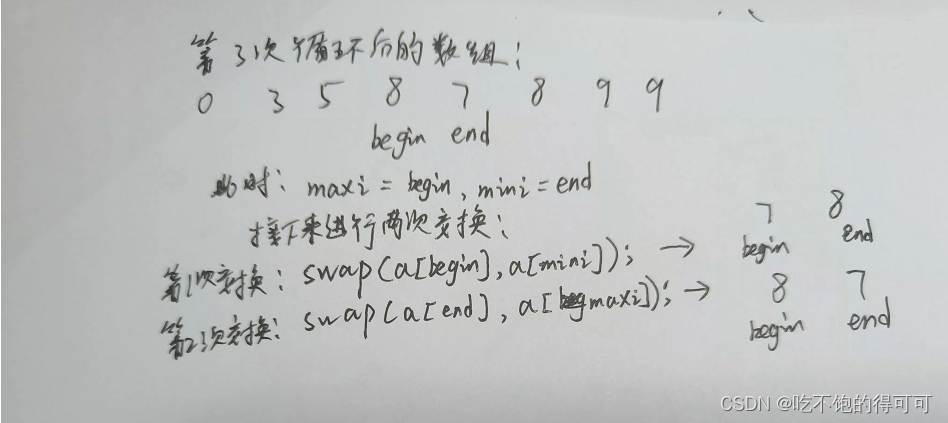 第3次循环后的数组:
0 3 5 8 7 8 9 9
begin end
此时: maxi = begin, mini = end
接下来进行两次交换:
7 8
begin end
第1次交换: swap(a[begin], a[mini]); →
第2次交换: swap(a[end], a[maxi]); →
8 7
begin end
CSDN @吃不饱的得可可